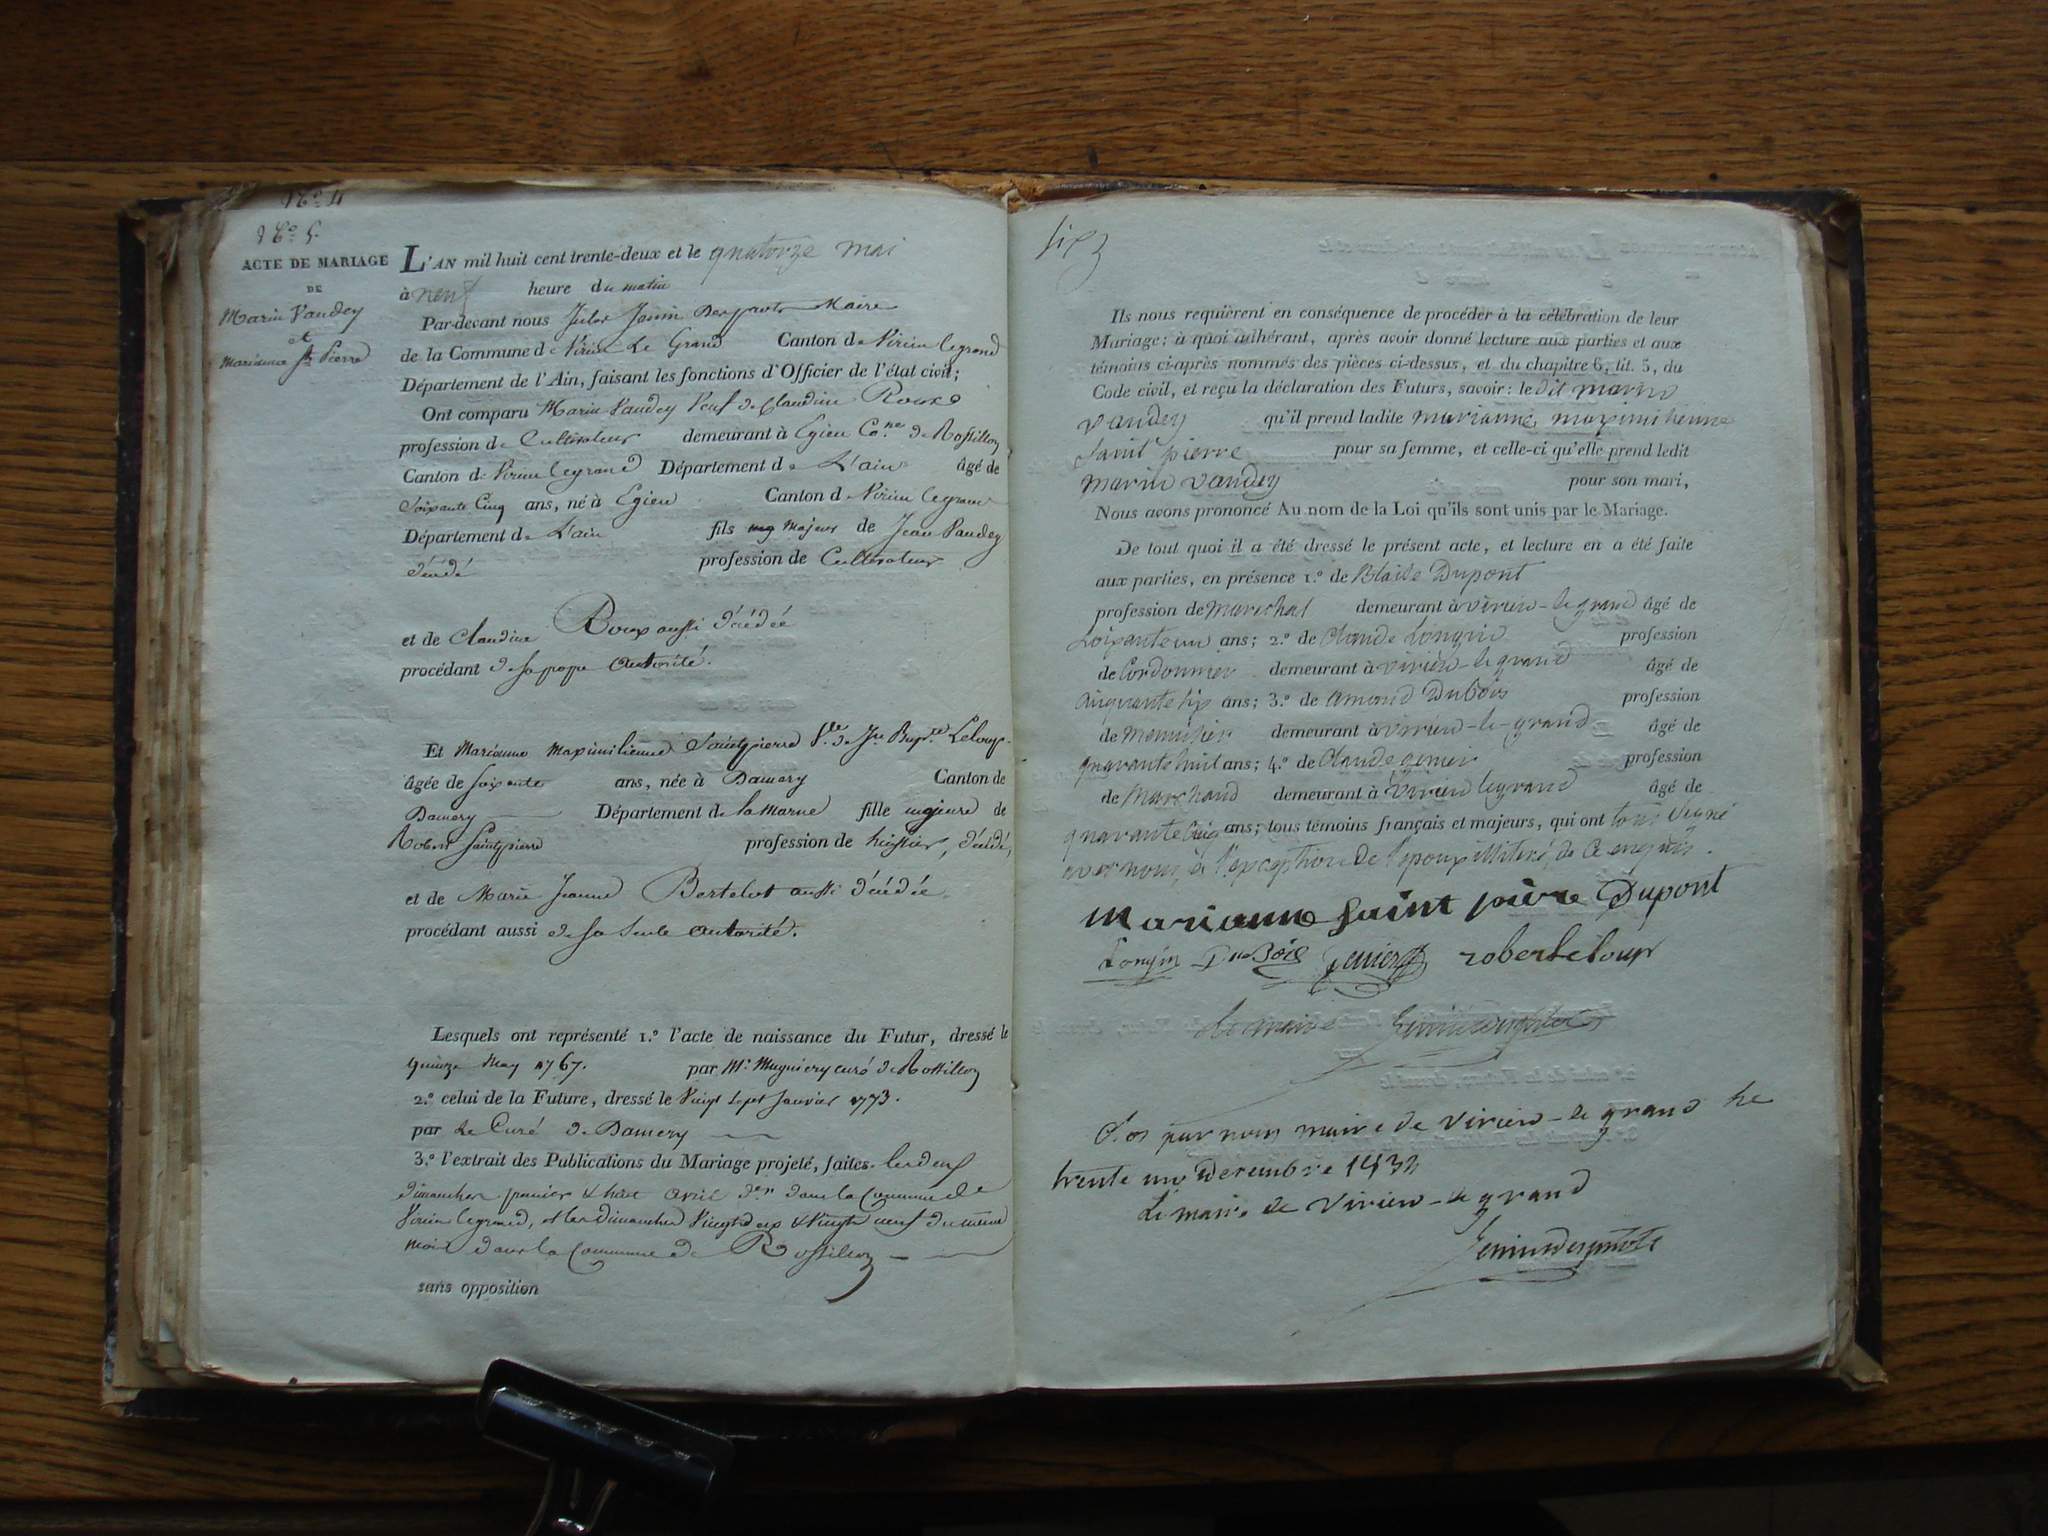 N.º 4
N.º 5.
ACTE DE MARIAGE
DE
Marin Vaudey
et
Marianne St Pierre
L'AN mil huit cent trente-deux et le quatorze mai
à neuf heure du matin
Par-devant nous Jules Jenin Desparts Maire
de la Commune de Virieu Le Grand Canton de Virieu legrand
Département de l'Ain, faisant les fonctions d'Officier de l'état civil;
Ont comparu Marin Vaudey Veuf de Claudine Roux
profession de Cultivateur demeurant à Egieu Co.ne de Rossillon
Canton de Virieu legrand Département de L'ain âgé de
Soixante Cinq ans, né à Egieu Canton de Virieu legrand
Département de L'ain fils majeur de Jean Vaudey
décédé profession de Cultivateur
et de Claudine Roux aussi décédée
procédant de sa propre autorité.
Et Marianne Maximilienne Saintpierre V.ve de Jn Bapt.te Leloup
âgée de soixante ans, née à Damery Canton de
Damery Département de la Marne fille majeure de
Robert Saintpierre profession de huissier, décédé,
et de Marie Jeanne Bertelot aussi décédée
procédant aussi de sa seule autorité.
Lesquels ont représenté 1.º l'acte de naissance du Futur, dressé le
quinze May 1767. par Mr Mugniery curé de Rossillon
2.º celui de la Future, dressé le Vingt Sept Janvier 1773.
par Le Curé de Damery
3.º l'extrait des Publications du Mariage projeté, faites les deux
dimanches premier & huit avril d.er dans la Commune de
Virieu legrand, et les dimanches Vingt deux & Vingt neuf du même
mois dans la Commune de Rossillon
sans opposition
six
Ils nous requièrent en conséquence de procéder à la célébration de leur
Mariage; à quoi adhérant, après avoir donné lecture aux parties et aux
témoins ci-après nommés des pièces ci-dessus, et du chapitre 6, tit. 5, du
Code civil, et reçu la déclaration des Futurs, savoir: le dit marin
vaudey qu'il prend ladite marianne maximilienne
Saint pierre pour sa femme, et celle-ci qu'elle prend ledit
marin vaudey pour son mari,
Nous avons prononcé Au nom de la Loi qu'ils sont unis par le Mariage.
De tout quoi il a été dressé le présent acte, et lecture en a été faite
aux parties, en présence 1.º de Blaise Dupont
profession de marechal demeurant à virieu-le grand âgé de
soixante un ans; 2.º de Claude Longin profession
de Cordonnier demeurant à virieu-le grand âgé de
cinquante six ans; 3.º de amand Dubois profession
de menuisier demeurant à virieu-le-grand âgé de
quarante huit ans; 4.º de Claude genier profession
de Marchand demeurant à virieu legrand âgé de
quarante cinq ans; tous témoins français et majeurs, qui ont tous signé
avec nous, à l'exception de l'epoux illitéré, de ce enquis.
Marianne saint pière Dupont
Longin DuBois genier robert leloup
Le maire Jenindesparts
Clos par nous maire de virieu-le grand le
trente un Decembre 1832
Le maire de virieu-le grand
Jenindesparts